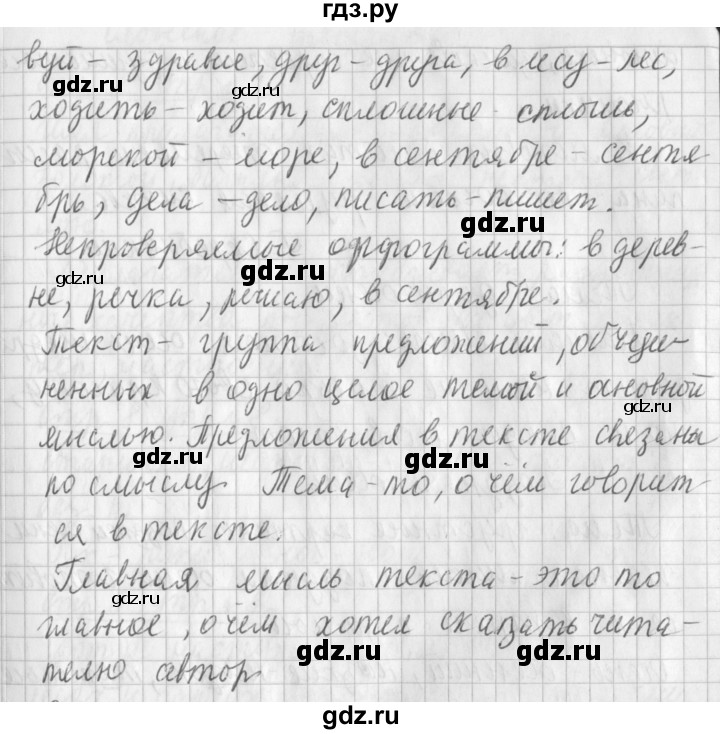 гдз.ру
вуй - здравие, друг - друга, в лесу - лес,
ходить - ходит, сплошные - сплошь,
морской - море, в сентябре - сентя
брь, дела - дело, писать - пишет.
gdz.ru
Непроверяемые орфограммы: в дерев-
gdz.ru
gdz.ru
не, речка, решаю, в сентябре.
Текст - группа предложений, объеди-
ненных в одно целое темой и основной
gdz.ru
мыслью. Предложения в тексте связаны
gdz.ru
gdz.ru
по смыслу Тема - то, о чём говорит-
ся в тексте.
Главная мысль текста - это то
gdz.ru
главное, о чём хотел сказать чита-
gdz.ru
gdz.ru
телю автор
gdz.ru